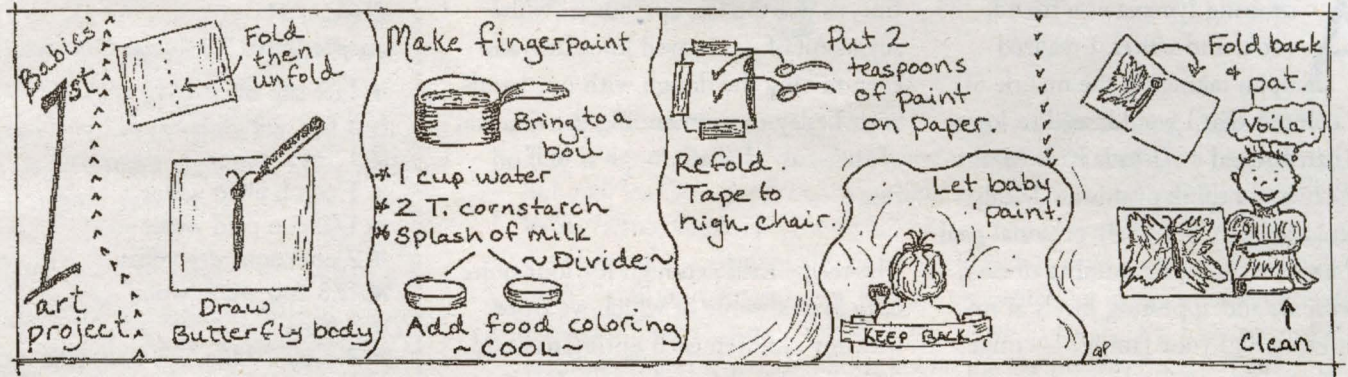 Babies'
1st
art
project.
Fold
then
unfold
Draw
Butterfly body
Make fingerpaint
Bring to a
boil
* 1 cup water
* 2 T. cornstarch
* Splash of milk
~ Divide ~
Add food coloring
~ COOL ~
Put 2
teaspoons
of paint
on paper.
Refold.
Tape to
high chair.
Let baby
'paint'.
KEEP BACK
Fold back
& pat
Voila!
Clean